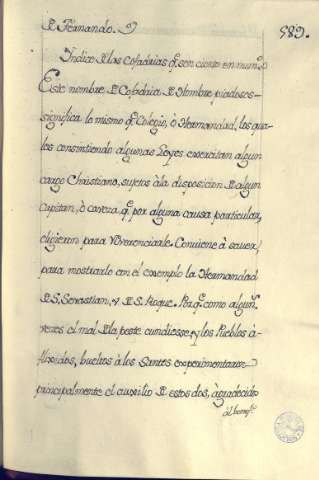 D. Fernando.
989.
Indice D las Cofadrias q. son ciento en num.o
Este nombre D Cofadria D Hombres piadosos
significa lo mismo q. Colegio, ò Hermandad, los qua-
les consintiendo algunas Leyes exercitan algun
cargo Christiano, sujetos à la disposicion D algun
Capitan, ò caveza q. por alguna causa particular,
eligieron para Reverenciarle. Conviene à saver,
para mostrarlo con el exemplo la Hermandad
D S. Sevastian, y D S. Roque. Porq. como algun.s
vezes el mal D la peste cundiesse, y los Pueblos a-
fligidos, bueltos à los Santos experimentaron
principalmente el auxilio D estos dos, agradecidos
al benef.o